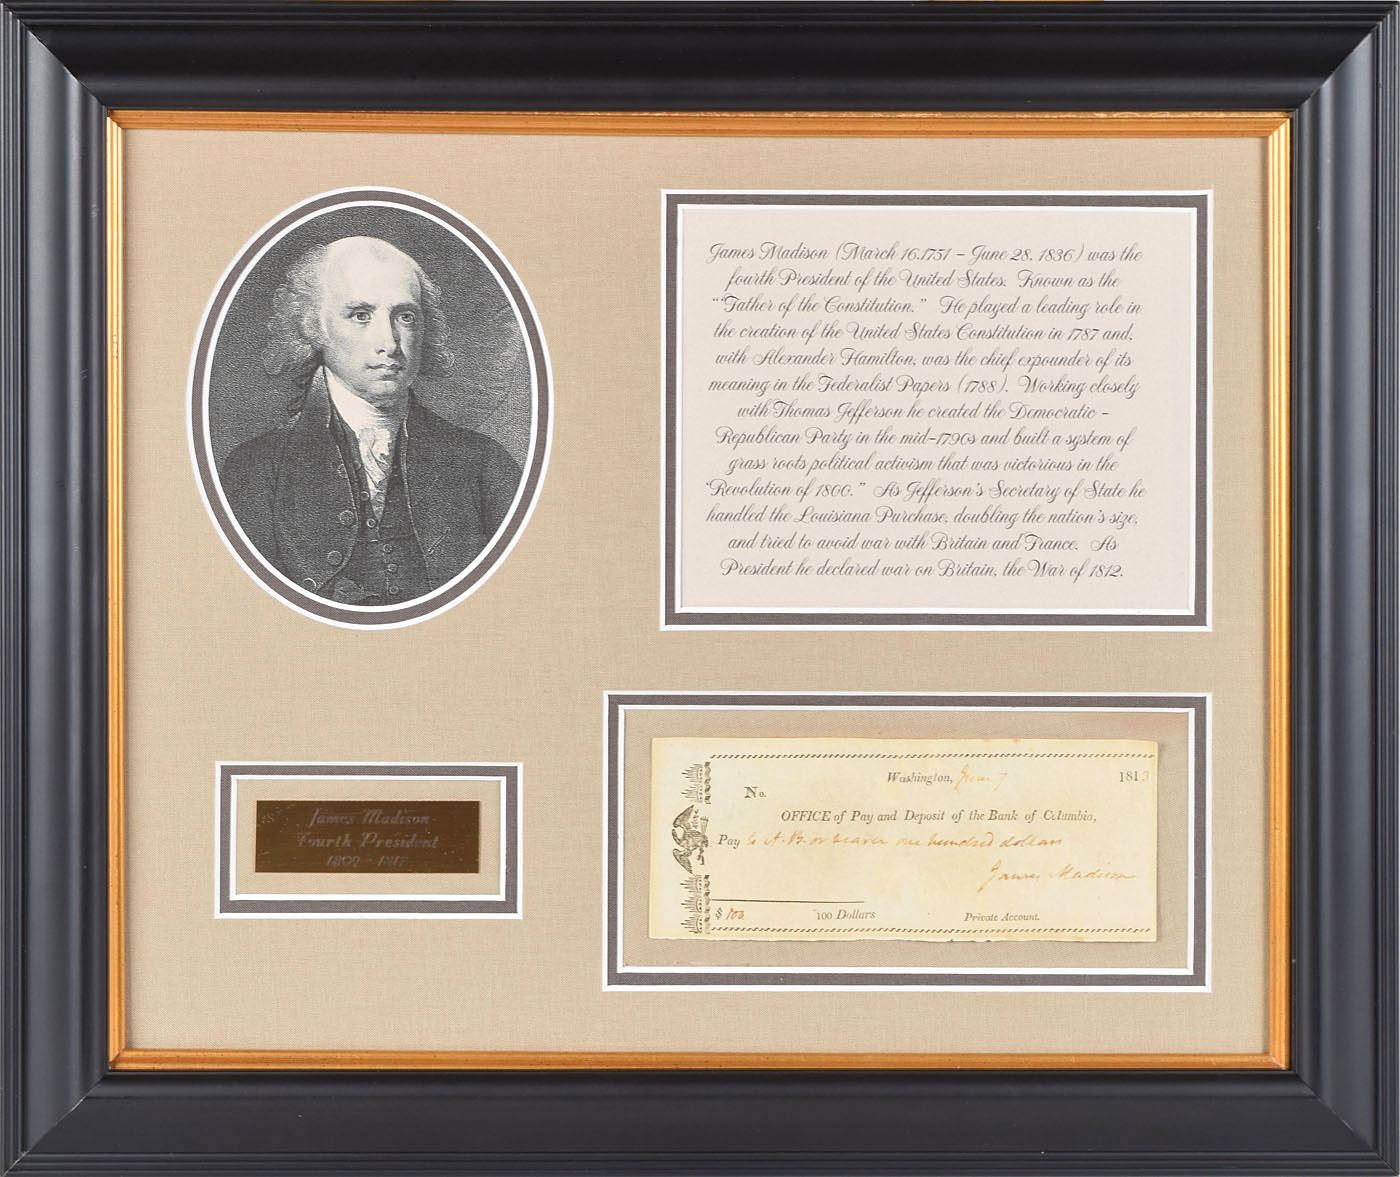 James Madison (March 16.1751 – June 28, 1836) was the
fourth President of the United States. Known as the
"“Father of the Constitution.” He played a leading role in
the creation of the United States Constitution in 1787 and,
with Alexander Hamilton, was the chief expounder of its
meaning in the Federalist Papers (1788). Working closely
with Thomas Jefferson he created the Democratic -
Republican Party in the mid-1790s and built a system of
grass roots political activism that was victorious in the
"Revolution of 1800." As Jefferson's Secretary of State he
handled the Louisiana Purchase, doubling the nation's size,
and tried to avoid war with Britain and France. As
President he declared war on Britain, the War of 1812.
James Madison
Fourth President
1809 - 1817
Washington, June 7 1813
No.
OFFICE of Pay and Deposit of the Bank of Columbia,
Pay to A. B. or bearer one hundred dollars
James Madison
$ 100 100 Dollars Private Account.